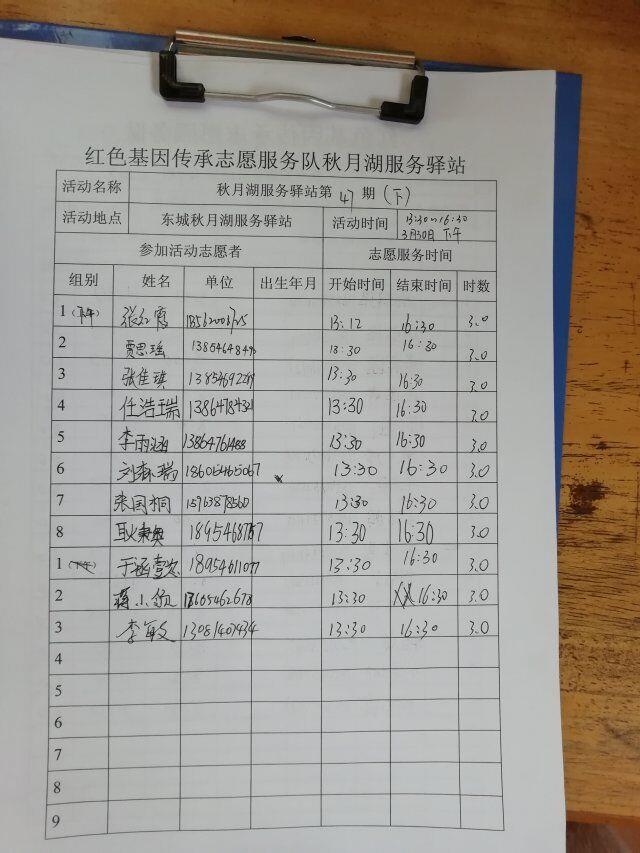 红色基因传承志愿服务队秋月湖服务驿站
活动名称 秋月湖服务驿站第 47 期(下)
活动地点 东城秋月湖服务驿站 活动时间 13:30~16:30 3月30日 下午
参加活动志愿者 志愿服务时间
组别 姓名 单位 出生年月 开始时间 结束时间 时数
1(下午) 张红霞 13:12 16:30 3.0
2 贾思瑶 16:30 3.0
3 张佳琪 13:30 16:30 3.0
4 任浩瑞 13:30 16:30 3.0
5 李雨涵 13:30 16:30 3.0
6 刘森瑞 13:30 16:30 3.0
7 张国桐 13:30 16:30 3.0
8 耿 13:30 16:30 3.0
1(下午) 于涵 13:30 16:30 3.0
2 蒋小 13:30 16:30 3.0
3 李敏 13081407434 13:30 16:30 3.0
4
5
6
7
8
9